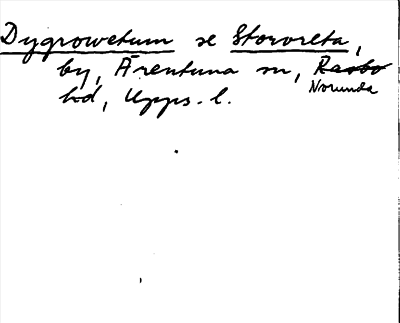 Dygrowetum se Storvreta,
by, Ärentuna sn, Rasbo
Norunda
hd, Upps. l.